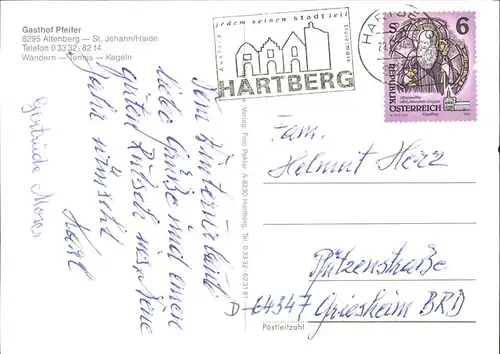 Gasthof Pfeifer
8295 Altenberg — St. Johann/Haide
Telefon 0 33 32 / 82 14
Wandern — Tennis — Kegeln
Vom Winterurlaub
liebe Grüße und einen
guten Rutsch ins Neue
Jahr wünscht
Karl
Gertrude
Verlag: Foto Fleker, A-8230 Hartberg, Tel. 0 33 32 / 62 31 81
Austria
jedem seinen Stadtteil
Steiermark
HARTBERG
HARTB
6
S
REPUBLIK
ÖSTERREICH
Fam.
Helmut Herz
Pfützenstraße
D-64347 Griesheim BRD
Postleitzahl